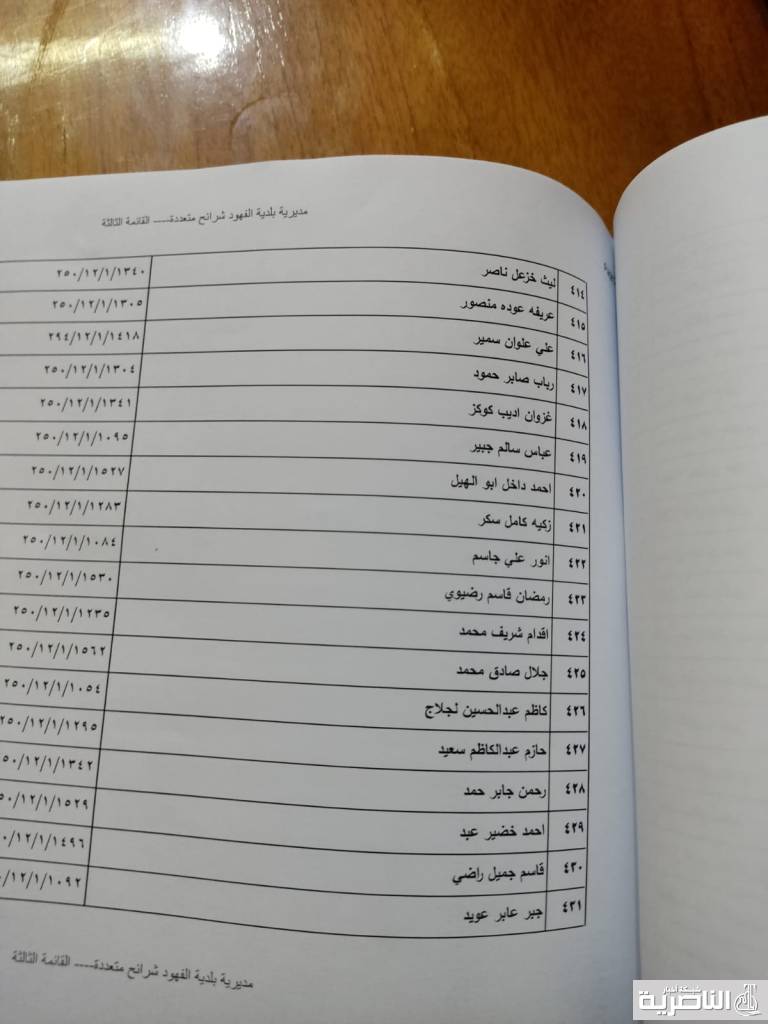 مديرية بلدية الفهود شرائح متعددة---- القائمة الثالثة
٤١٤ ليث خزعل ناصر ٢٥٠/١٢/١/١٣٤٠
٤١٥ عريفه عوده منصور ٢٥٠/١٢/١/١٣٠٥
٤١٦ علي علوان سمير ٢٩٤/١٢/١/١٤١٨
٤١٧ رباب صابر حمود ٢٥٠/١٢/١/١٣٠٤
٤١٨ غزوان اديب كوكز ٢٥٠/١٢/١/١٣٤١
٤١٩ عباس سالم جبير ٢٥٠/١٢/١/١٠٩٥
٤٢٠ احمد داخل ابو الهيل ٢٥٠/١٢/١/١٥٢٧
٤٢١ زكيه كامل سكر ٢٥٠/١٢/١/١٢٨٣
٤٢٢ انور علي جاسم ٢٥٠/١٢/١/١٠٨٤
٤٢٣ رمضان قاسم رضيوي ٢٥٠/١٢/١/١٥٣٠
٤٢٤ اقدام شريف محمد ٢٥٠/١٢/١/١٢٣٥
٤٢٥ جلال صادق محمد ٢٥٠/١٢/١/١٥٦٢
٤٢٦ كاظم عبدالحسين لجلاج ٢٥٠/١٢/١/١٠٥٤
٤٢٧ حازم عبدالكاظم سعيد ٢٥٠/١٢/١/١٢٩٥
٤٢٨ رحمن جابر حمد ٥٠/١٢/١/١٣٤٢
٤٢٩ احمد خضير عبد ٥٠/١٢/١/١٥٢٩
٤٣٠ قاسم جميل راضي ٠/١٢/١/١٤٩٦
٤٣١ جبر عابر عويد /١٢/١/١٠٩٢
مديرية بلدية الفهود شرائح متعددة---- القائمة الثالثة
شبكة أخبار
الناصرية